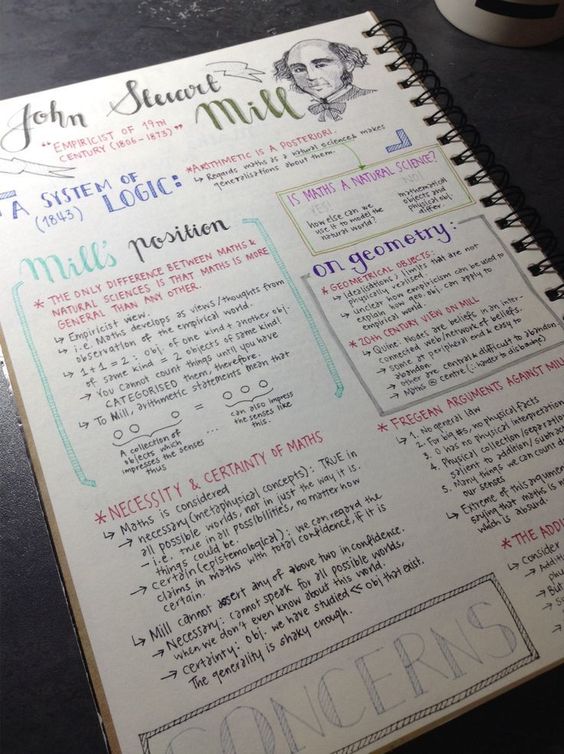 John Stewart
Mill
"EMPIRICIST OF 19TH
CENTURY (1806-1873)"
*ARITHMETIC IS A POSTERIORI.
↳ Regards maths as a natural science; makes
generalisations about them.
A SYSTEM OF
(1843) LOGIC:
IS MATHS A NATURAL SCIENCE?
YES!
How else can we
use it to model the
natural world?
NO!
mathematical
objects and
physical obj
differ.
Mill's position
* THE ONLY DIFFERENCE BETWEEN MATHS &
NATURAL SCIENCES IS THAT MATHS IS MORE
GENERAL THAN ANY OTHER.
↳ Empiricist view.
↳ i.e. Maths develops as views/thoughts from
observation of the empirical world.
↳ 1+1=2 : obj. of one kind + another obj.
of same kind = 2 objects of same kind!
↳ You cannot count things until you have
CATEGORISED them, therefore.
↳ To Mill, arithmetic statements mean that
=
A collection of
objects which
impresses the senses
thus
...can also impress
the senses like
this.
on geometry:
* GEOMETRICAL OBJECTS:
↳ Idealisations / limits that are not
physically verised.
↳ unclear how empiricism can be used to
explain how geo. obj. can apply to
empirical world.
* 20TH CENTURY VIEW ON MILL
↳ Quine: Nodes are beliefs in an inter-
connected web/network of beliefs.
→ some at peripheral end & easy to
abandon.
→ Other are central & difficult to abandon
→ Maths @ centre (: harder to disbadge)
* NECESSITY & CERTAINTY OF MATHS
↳ Maths is considered
→ necessary (metaphysical concepts): TRUE in
all possible worlds, not in just the way it is.
- i.e. true in all possibilities, no matter how
things could be.
→ certain (epistemological): we can regard the
claims in maths with total confidence, if it is
certain.
↳ Mill cannot assert any of above two in confidence.
→ Necessary: cannot speak for all possible worlds,
when we don't even know about this world.
→ certainty: obj. we have studied << obj that exist.
The generality is shaky enough.
* FREGEAN ARGUMENTS AGAINST MILL
↳ 1. No general law
2. For big #s, no physical facts
3. 0 has no physical interpretation
4. Physical collection/separation
salient to addition/subtrac
5. Many things we can count d
our senses
↳ Extreme of this argumen
saying that maths is n
which is absurd.
* THE ADDI
↳ Consider
→ Additi
phy
But
CONCERNS